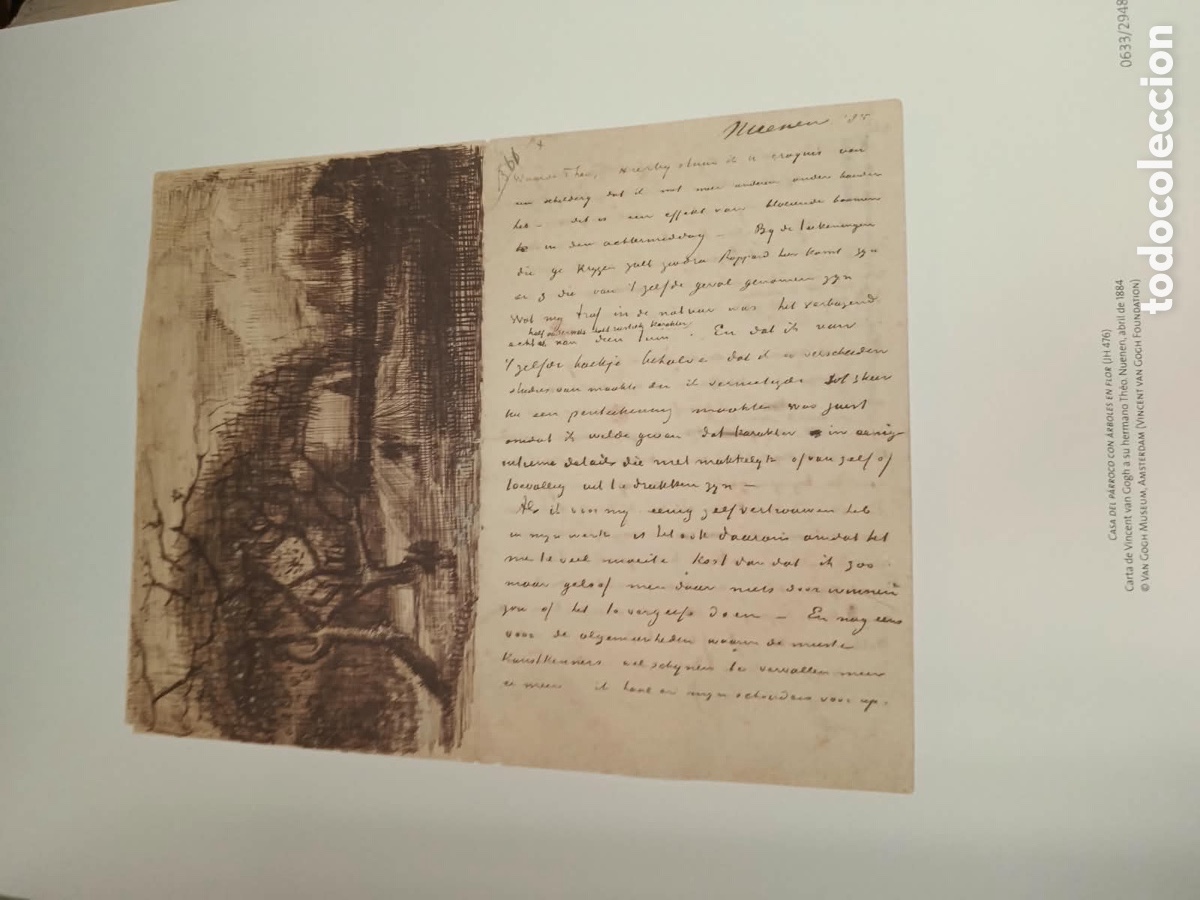 Nuenen '85
Waarde Theo, Hierby stuur ik u croquis van
een schildery dat ik met meer anderen onder handen
heb – dit is een effekt van bloeiende boomen
in den achtermiddag – By de teekeningen
die ge krygen zult zoodra Rappard hier komt zyn
er 3 die van 't zelfde geval genomen zyn
Wat my trof in de natuur was het verbazend
half ouderwets half rustiek karakter
van dien tuin. En dat ik van
't zelfde hoekje behalve dat ik er verscheiden
studies van maakte die ik vernietigde tot 3 keer
toe een penteekening maakte was juist
omdat ik wilde geven dat karakter in eenig
intieme details die niet makkelyk of van zelf of
toevallig uit te drukken zyn –
Als ik voor my eenig zelfvertrouwen heb
in myn werk is het ook daarom omdat het
me te veel moeite kost dan dat ik zoo
maar geloof men daar niets door winnen
zou of het te vergeefs doen – En nog eens
voor de algemeenheden waarin de meeste
kunstkenners wel schynen te vervallen meer
en meer ik haal er myn schouders voor op.
CASA DEL PÁRROCO CON ÁRBOLES EN FLOR (JH 476)
Carta de Vincent van Gogh a su hermano Théo. Nuenen, abril de 1884
© VAN GOGH MUSEUM, AMSTERDAM (VINCENT VAN GOGH FOUNDATION)
0633/2948
todocoleccion